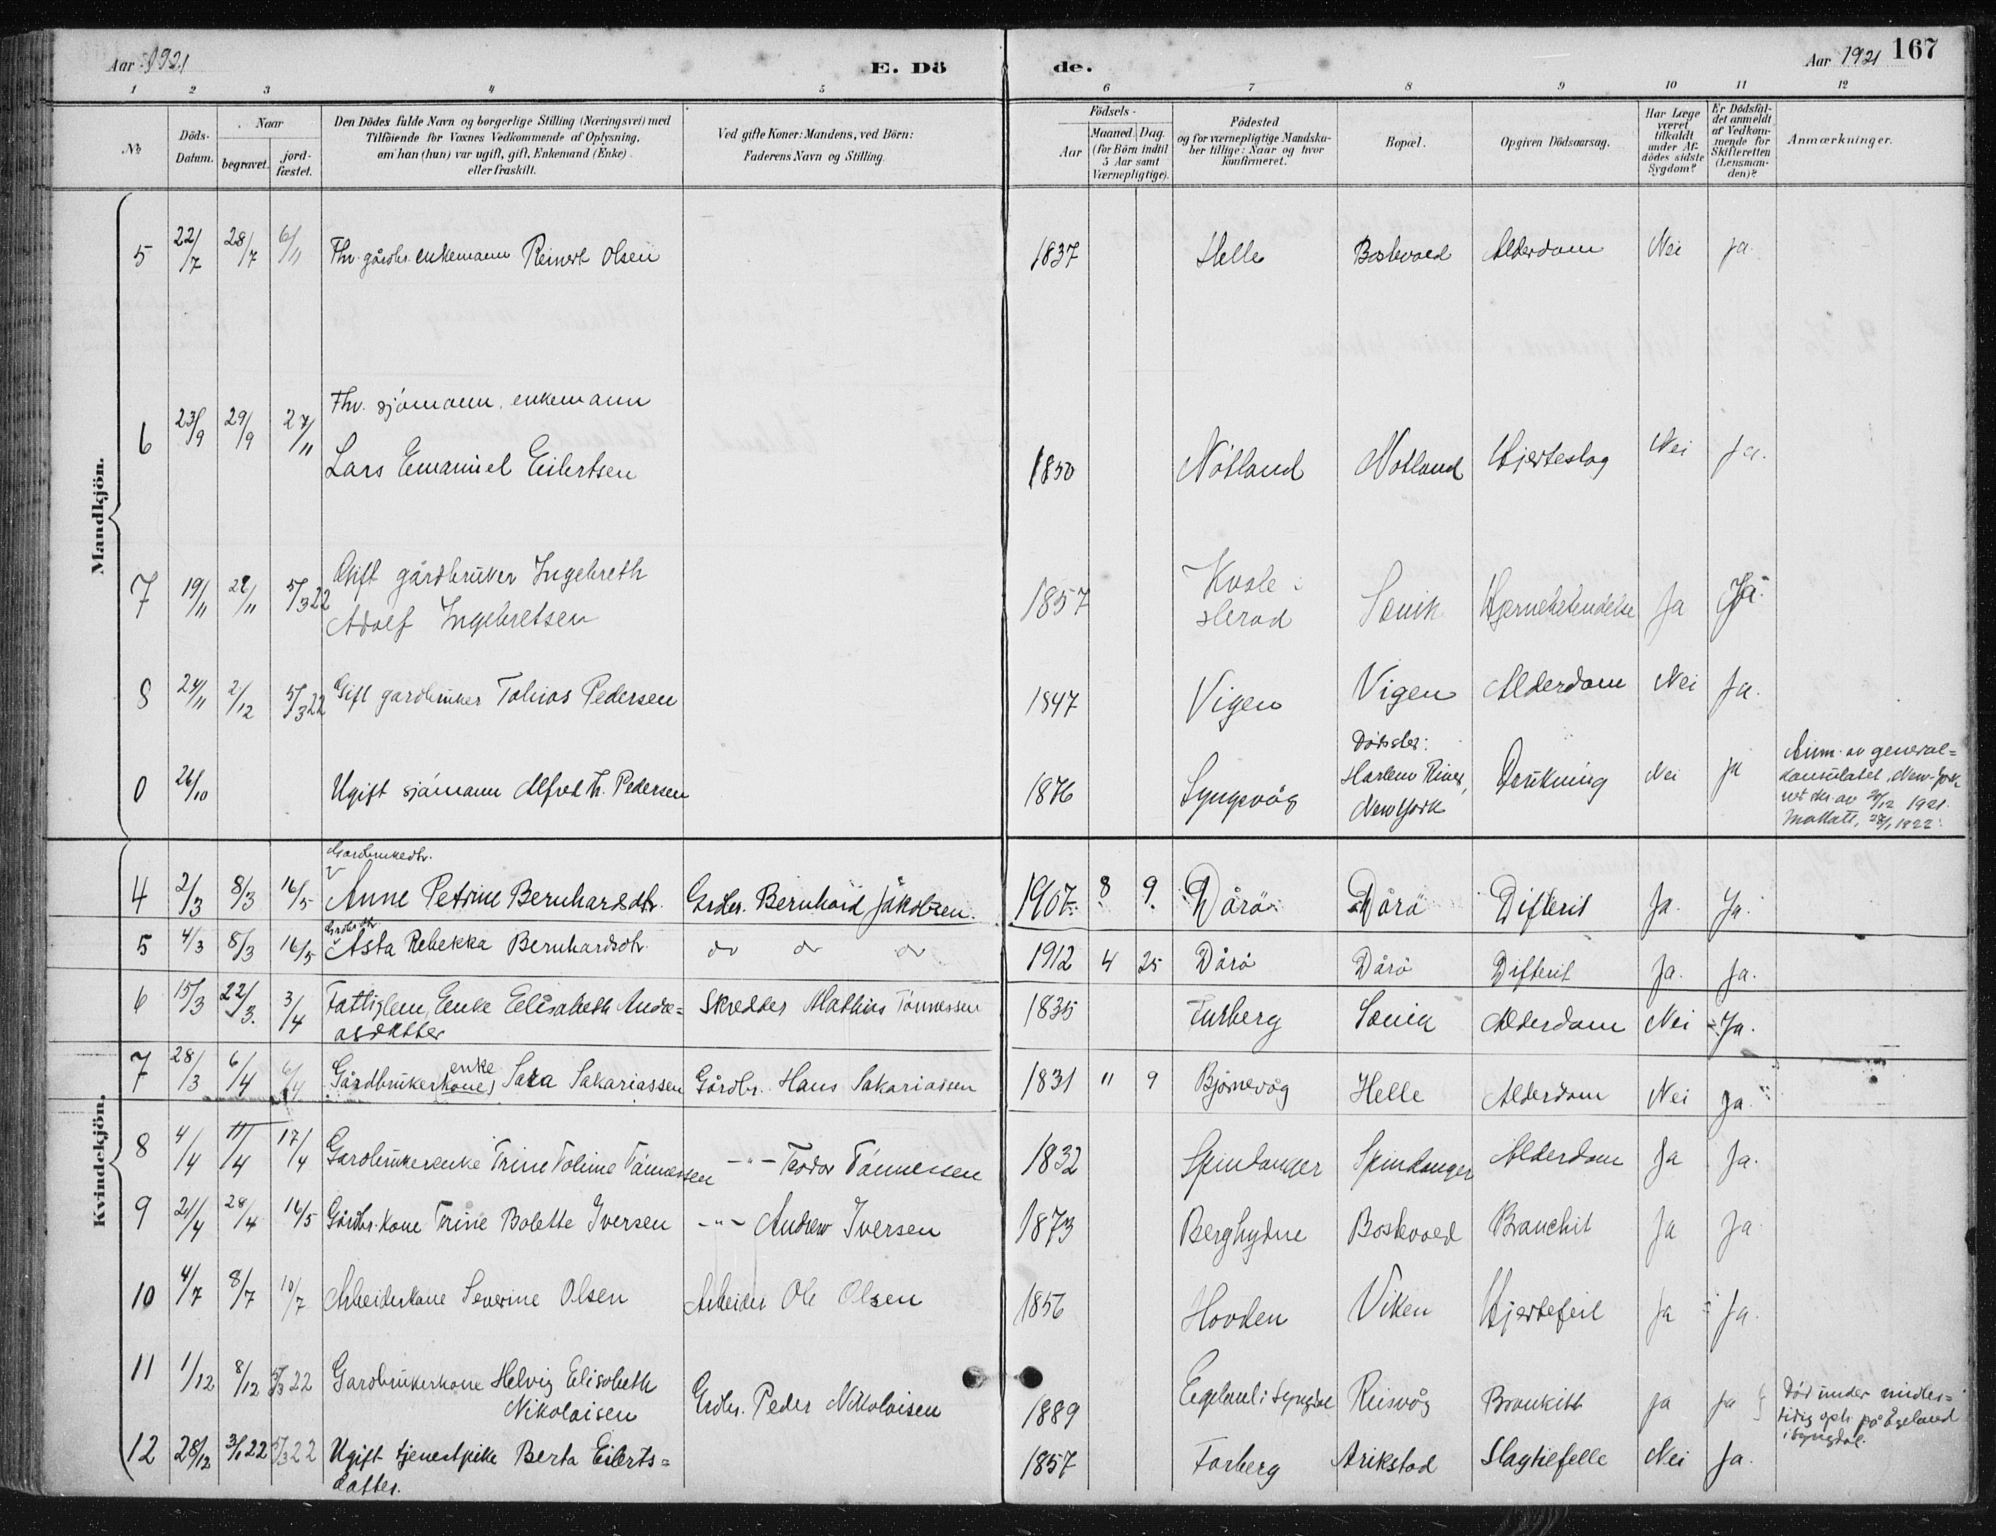 Aar 1921
E. Dö
de.
Aar 1921 167
1 2 3 4 5 6 7 8 9 10 11 12
No
Döds-
Datum.
Naar
begravet.
jord-
fæstet.
Den Dödes fulde Navn og borgerlige Stilling (Næringsvei) med
Tilföiende for Voxnes Vedkommende af Oplysning,
om han (hun) var ugift, gift, Enkemand (Enke)
eller fraskilt.
Ved gifte Koner: Mandens, ved Börn:
Faderens Navn og Stilling.
Födsels-
Aar
Maaned. Dag.
(for Börn indtil
5 Aar samt
Værnepligtige).
Födested
og for værnepligtige Mandska-
ber tillige: Naar og hvor
konfirmeret.
Bopæl.
Opgiven Dödsaarsag.
Har Læge
været
tilkaldt
under Af-
dödes sidste
Sygdom?
Er Dödsfal-
det anmeldt
af Vedkom-
mende for
Skifteretten
(Lensman-
den)?
Anmærkninger.
Mandkjön.
5 22/7 28/7 6/11 Fhv. gårdbr. enkemann Reinert Olsen 1837 Helle Boskvoed Alderdom Nei ja
Fhv. sjómann, enkemann
6 23/9 29/9 27/11 Lars Emanuel Eilertsen 1850 Nótland Notland Hjerteslag Nei ja.
7 19/11 29/11 5/3 22 Gift gårdbruker Ingebreth 1857 Kvale i Ja Ja.
Adolf Ingebretsen Herad Hjernebetendelse
8 24/11 2/12 5/3 22 Gift gardbruker Tobias Pedersen 1847 Vigen Vigen Alderdom Nei Ja.
0 26/10 Ugift sjómann Alfred Th. Pedersen 1876 Syngevåg Dódssted:
Harlem River,
New York
Drukning Nei ja
Anm. av general=
konsulatet, New-York
ved skr. av 20/12 1921.
Mottatt, 28/1 1922.
Kvindekjön.
Gardbrukerdtr.
4 2/3 8/3 16/5 Anne Petrine Bernhardsdtr. Grdbr. Bernhard Jakobsen. 1907 8 9 Dårö Dårö Difterit Ja. Ja.
Grdbr.dtr.
5 4/3 8/3 16/5 Asta Rebekka Bernhardsdtr. do do do 1912 4 25 Dårö Dårö Difterit Ja. Ja.
6 15/3 22/3. 3/4 Fattiglem, Enke Elisabeth Andre= Skredder Mathias Tönnessen 1835 Furberg Alderdom Nei Ja.
asdatter
7 28/3 6/4 6/4 Gårdbruker(kone) enke Sara Sakariassen Gårdbr. Hans Sakariassen 1831 11 9 Bjórnevåg Helle Alderdom Nei Ja.
8 4/4 11/4 17/4 Gardbrukerenke Trine Toline Tánnessen -"- Teodor Tánnessen 1832 Spindanger Spindanger Alderdom Ja Ja.
9 21/4 28/4 16/5 Gårdbr. kone Trine Bolette Iversen -"- Andrew Iversen 1873 Berghydne Boskvoed Bronchit Ja Ja
10 4/7 8/7 10/7 Arbeiderkone Severine Olsen Arbeider Ole Olsen 1856 Hovden Viken Hjertefeil Ja Ja.
11 1/12 8/12 5/3 22 Gardbrukerkone Helvig Elisabeth Grdbr. Peder Nikolaisen 1889 Egeland i Lyngdal Risvåg Bronkitt ja ja
Nikolaisen
Dód under midler=
tidig oph. på Egeland
i Lyngdal.
12 28/12 3/1 22 5/3 22 Ugift tjenestpike Berta Eilerts= 1857 Farberg Arikstad Slagtilfelle Nei Ja.
datter.